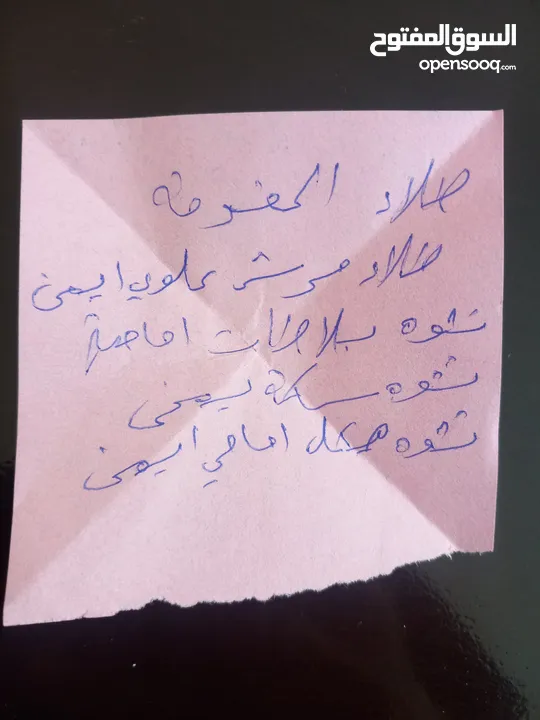 السوق المفتوح
opensooq.com
طلاء المقدمة
طلاء مرش علوي ايمن
تشوه بلاطات امامية
تشوه سكة يمنى
تشوه هيكل امامي ايمن